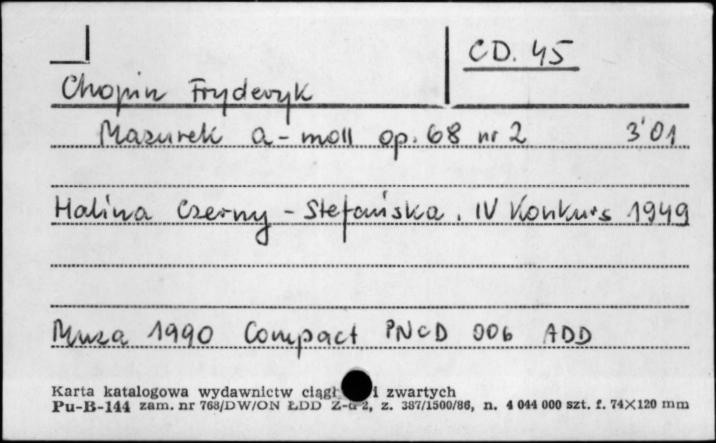 CD. 45
Chopin Fryderyk
Mazurek a-moll op. 68 nr 2 3'01
Halina Czerny-Stefańska. IV Konkurs 1949
Muza 1990 Compact PNCD 006 ADD
Karta katalogowa wydawnictw i zwartych
Pu-B-144 zam. nr 768/DW/ON ŁDD 2, z. 387/1500/86, n. 4 044 000 szt. f. 74×120 mm